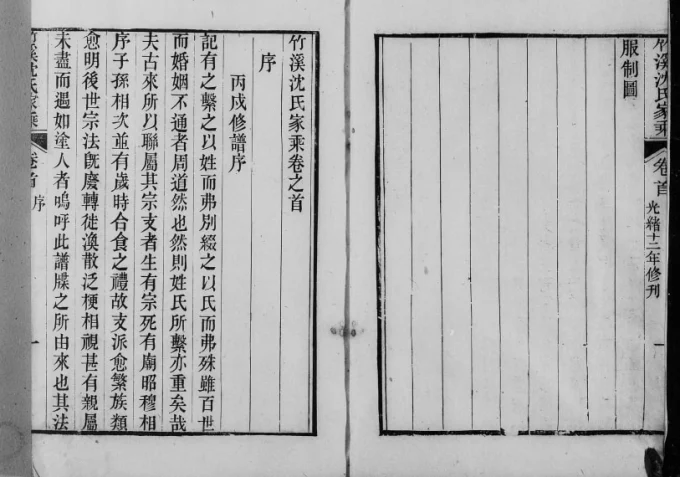 竹溪沈氏家乘
卷首
光緒十二年修刊
一
服制圖
竹溪沈氏家乘卷之首
序
丙戍修譜序
記有之繫之以姓而弗別綴之以氏而弗殊雖百世
而婚姻不通者周道然也然則姓氏所繫亦重矣哉
夫古來所以聯屬其宗支者生有宗死有廟昭穆相
序子孫相次並有歲時合食之禮故支派愈繁族類
愈明後世宗法旣廢轉徙渙散泛梗相視甚有親屬
未盡而遇如塗人者嗚呼此譜牒之所由來也其法
竹溪沈氏家乘
卷首
序
一